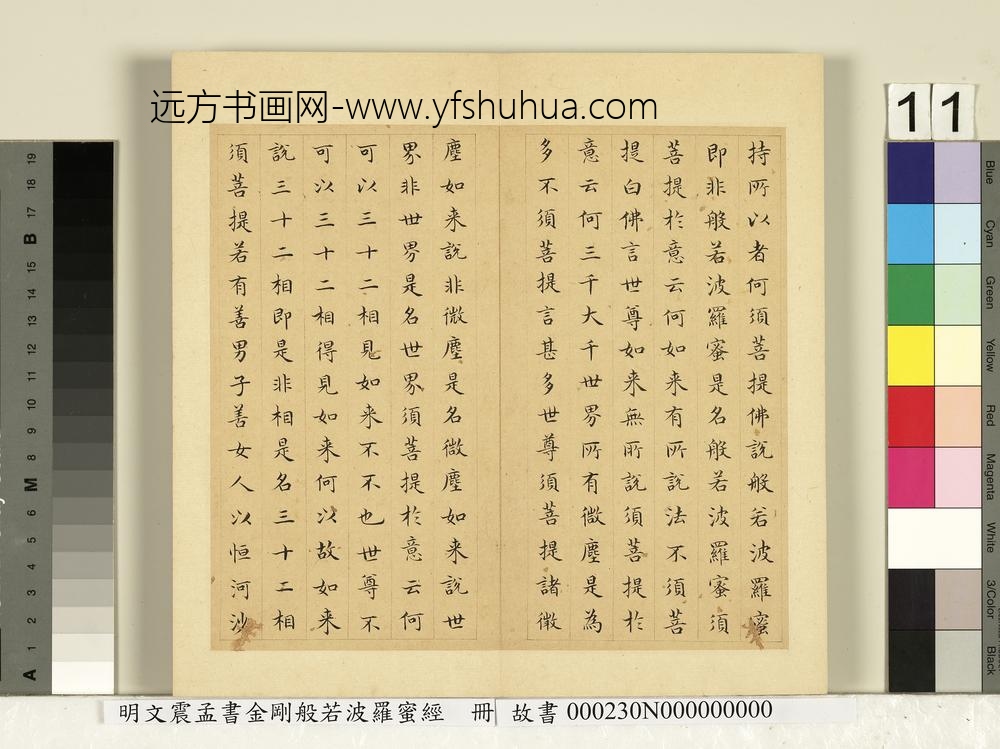 远方书画网-www.yfshuhua.com
11
持所以者何須菩提佛說般若波羅蜜
即非般若波羅蜜是名般若波羅蜜須
菩提於意云何如来有所說法不須菩
提白佛言世尊如来無所說須菩提於
意云何三千大千世界所有微塵是為
多不須菩提言甚多世尊須菩提諸微
塵如来說非微塵是名微塵如来說世
界非世界是名世界須菩提於意云何
可以三十二相見如来不不也世尊不
可以三十二相得見如来何以故如来
說三十二相即是非相是名三十二相
須菩提若有善男子善女人以恒河沙
Blue
Cyan
Green
Yellow
Red
Magenta
White
3/Color
Black
19
18
17
B
15
14
13
12
11
10
9
8
M
6
5
4
3
2
1
A
明文震孟書金剛般若波羅蜜經 冊 故書 000230N000000000